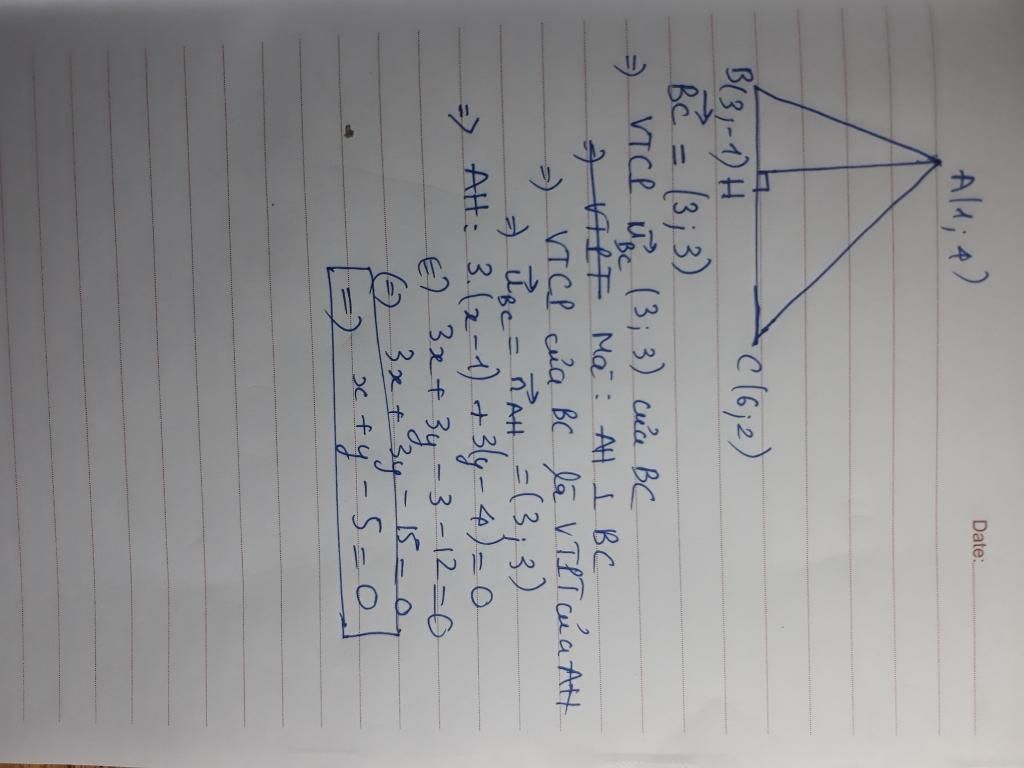 Date:
A(1; 4)
B(3,-1) H C(6;2)
BC = (3; 3)
=) VTCP u BC (3; 3) của BC
=) VTPT Mà: AH ⊥ BC
=) VTCP của BC là VTPT của AH
=) u BC = n AH = (3; 3)
=) AH: 3.(x-1) + 3(y-4) = 0
(=) 3x + 3y - 3 - 12 = 0
(=) 3x + 3y - 15 = 0
=) x + y - 5 = 0